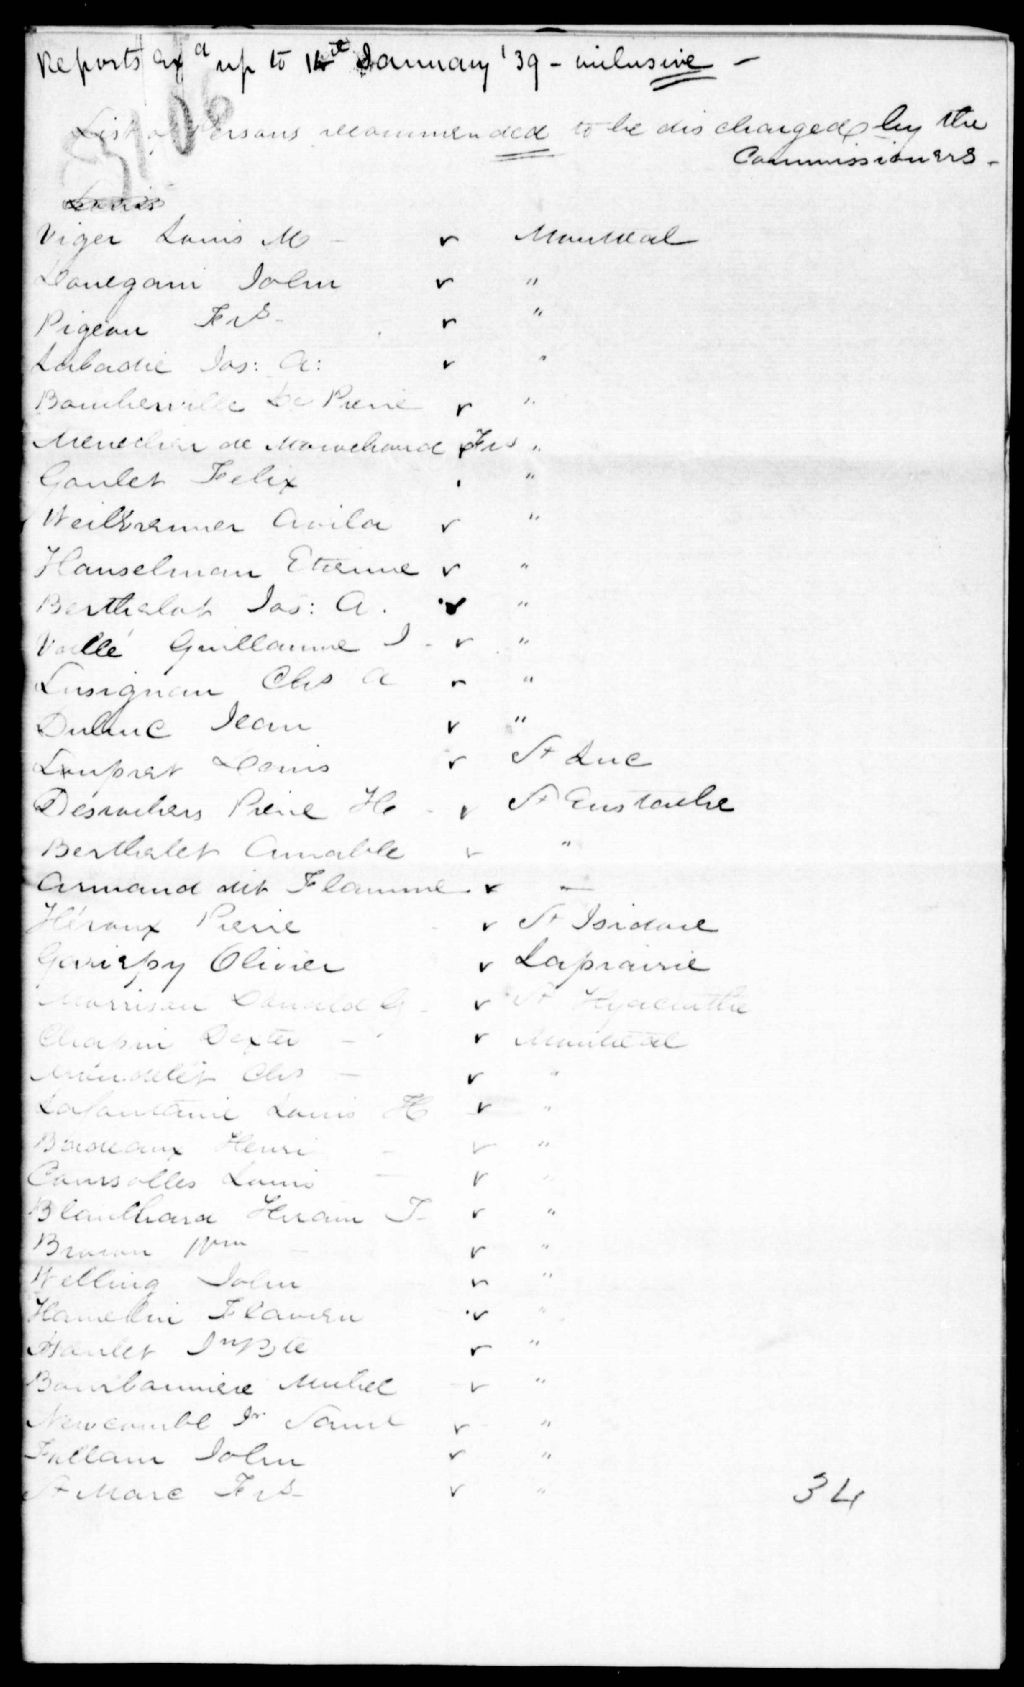 Reports exd up to 14th January '39 - inclusive -
3106
List of Persons recommended to be discharged by the
Commissioners -
Louis
Viger Louis M - v Montreal
Donegani John v "
Pigeon Frs - v "
Labadie Jos: A: v "
Boucherville De Pierre v "
Menechier de Morochond Frs "
Goulet Felix "
Weilbrenner Avila v "
Hanselman Etienne v "
Berthelot Jos: A. v "
Vallé Guillaume J - v "
Lusignan Chs A v "
Dubuc Jean v "
Loupret Louis v St Luc
Desrochers Pierre H - v St Eustache
Berthelet Amable v "
Armand dit Flamme v "
Héroux Pierre v St Isidore
Gariepy Olivier v Laprairie
Morrison Donald G - v St Hyacinthe
Chapin Dexter - v Montreal
Mondelet Chs - v "
Lafontaine Louis H v "
Badeaux Henri - v "
Coursolles Louis - v "
Blanchard Hiram F - v "
Brown Wm - v "
Welling John v "
Hamelin Flavien v "
Haulet Jn Bte v "
Bourbonniere Michel v "
Newcombe Jr Saml v "
Fullam John v "
St Marc Frs - v "
34